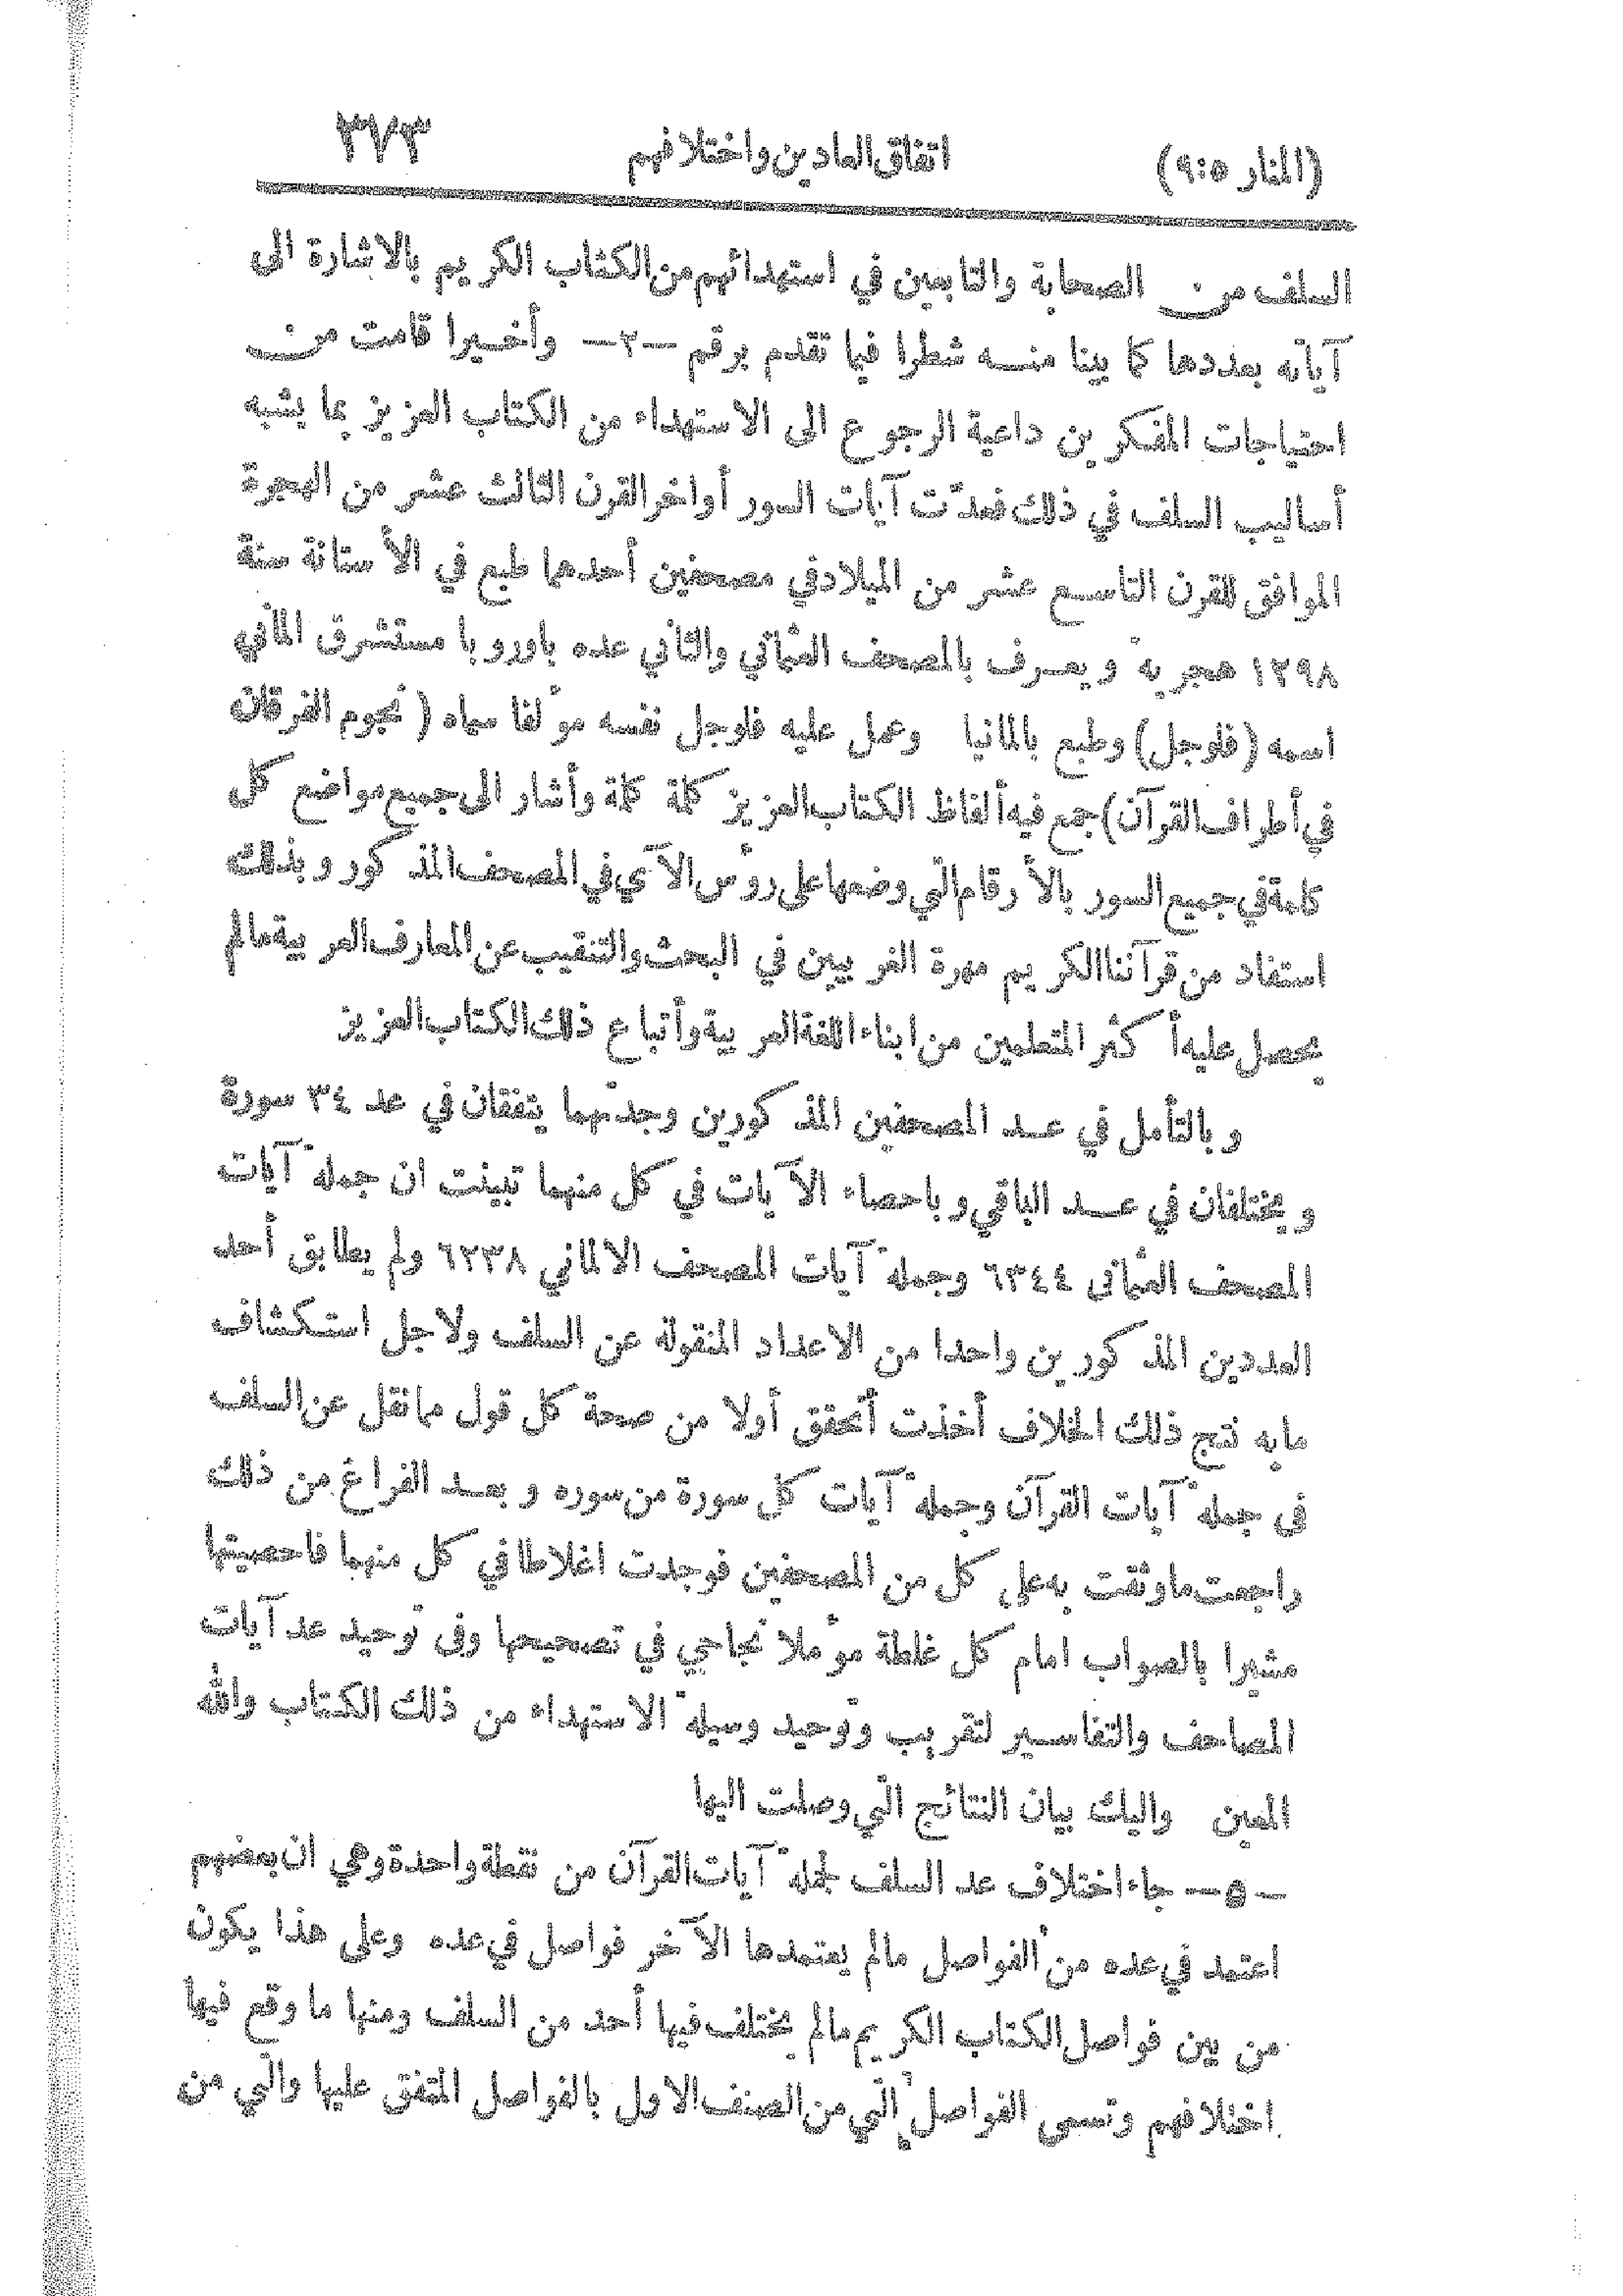 (المنار ٥:٩) اتفاق العادين واختلافهم ٣٧٣
السلف من الصحابة والتابعين في استهدائهم من الكتاب الكريم بالاشارة الى
آياته بعددها كما بينا منه شطرا فيما تقدم برقم —٣— وأخيرا قامت من
احتياجات المفكرين داعية الرجوع الى الاستهداء من الكتاب العزيز بما يشبه
أساليب السلف في ذلك فعدّت آيات السور أواخر القرن الثالث عشر من الهجرة
الموافق للقرن التاسع عشر من الميلاد في مصحفين أحدهما طبع في الأستانة سنة
١٢٩٨ هجرية ويعرف بالمصحف العثماني والثاني عده باوروبا مستشرق الماني
اسمه (فلوجل) وطبع بالمانيا وعمل عليه فلوجل نفسه مؤلفا سماه (نجوم الفرقان
في أطراف القرآن) جمع فيه ألفاظ الكتاب العزيز كلمة كلمة وأشار الى جميع مواضع كل
كلمة في جميع السور بالأرقام التي وضعها على رؤس الآي في المصحف المذكور وبذلك
استفاد من قرآننا الكريم مهرة الغربيين في البحث والتنقيب عن المعارف العربية مالم
يحصل عليه أكثر المتعلمين من ابناء اللغة العربية وأتباع ذلك الكتاب العزيز
وبالتأمل في عد المصحفين المذكورين وجدتهما يتفقان في عد ٣٤ سورة
ويختلفان في عد الباقي وباحصاء الآيات في كل منهما تبينت ان جملة آيات
المصحف العثماني ٦٣٤٤ وجملة آيات المصحف الالماني ٦٢٣٨ ولم يطابق أحد
العددين المذكورين واحدا من الاعداد المنقولة عن السلف ولاجل استكشاف
مابه نتج ذلك الخلاف أخذت أتحقق أولا من صحة كل قول مما نقل عن السلف
في جملة آيات القرآن وجملة آيات كل سورة من سوره وبعد الفراغ من ذلك
راجعت ماوثقت به على كل من المصحفين فوجدت اغلاطا في كل منهما فاحصيتها
مشيرا بالصواب امام كل غلطة مؤملا نجاحي في تصحيحها وفي توحيد عد آيات
المصاحف والتفاسير لتقريب وتوحيد وسيلة الاستهداء من ذلك الكتاب والله
المعين واليك بيان النتائج التي وصلت اليها
—٥— جاء اختلاف عد السلف لجملة آيات القرآن من نقطة واحدة وهي ان بعضهم
اعتمد في عده من الفواصل مالم يعتمدها الآخر فواصل في عده وعلى هذا يكون
من بين فواصل الكتاب الكريم مالم يختلف فيها أحد من السلف ومنها ما وقع فيها
اختلافهم وتسمى الفواصل التي من الصنف الاول بالفواصل المتفق عليها والتي من